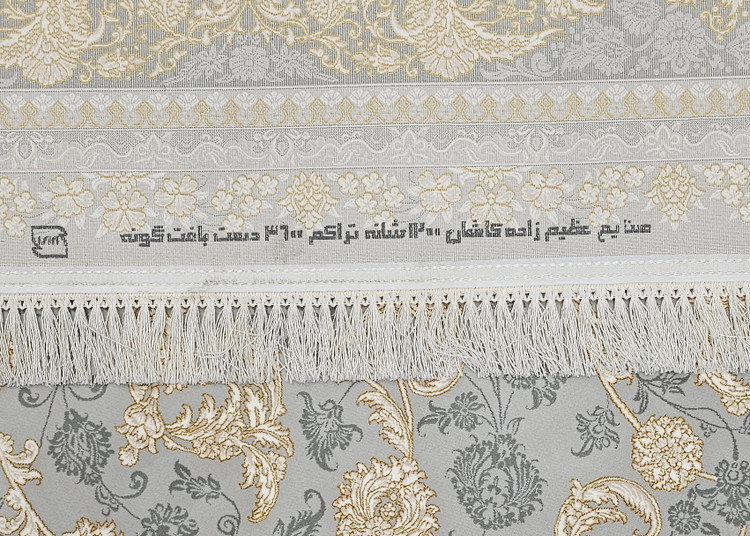 صنایع عظیم زاده کاشان ۱۲۰۰ شانه تراکم ۳۶۰۰ دست بافت گونه